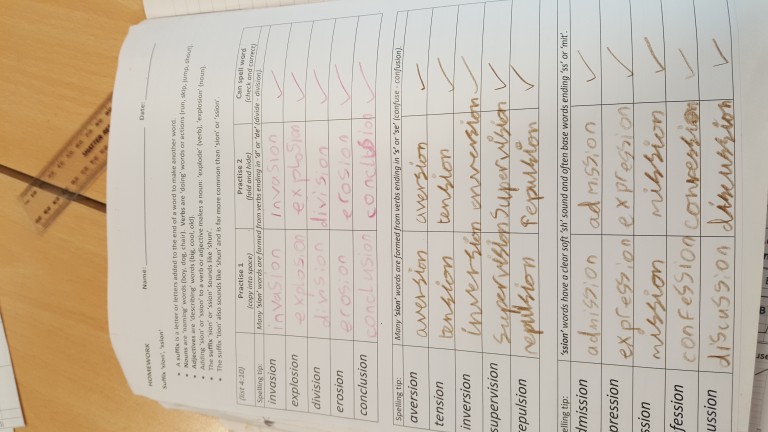 HOMEWORK
Name: Date:
Suffix 'sion', 'ssion'
• A suffix is a letter or letters added to the end of a word to make another word.
• Nouns are 'naming' words (boy, dog, chair). Verbs are 'doing' words or actions (run, skip, jump, shout).
• Adjectives are 'describing' words (big, cool, old).
• Adding 'sion' or 'ssion' to a verb or adjective makes a noun: 'explode' (verb), 'explosion' (noun).
• The suffix 'sion' or 'ssion' sounds like 'shun'.
• The suffix 'tion' also sounds like 'shun' and is far more common than 'sion' or 'ssion'.
(list 4:10) Practise 1 Practise 2 Can spell word
(copy into space) (fold and hide) (check and correct)
Spelling tip: Many 'sion' words are formed from verbs ending in 'd' or 'de' (divide - division).
invasion invasion invasion ✓
explosion explosion ✓
division division division ✓
erosion erosion erosion ✓
conclusion conclusion conclusion ✓
Spelling tip: Many 'sion' words are formed from verbs ending in 's' or 'se' (confuse - confusion).
aversion aversion aversion ✓
tension tension tension ✓
inversion inversion inversion ✓
supervision supervision supervision ✓
epulsion repulsion repulsion ✓
elling tip: 'ssion' words have a clear soft 'sh' sound and often base words ending 'ss' or 'mit'.
dmission admission admission ✓
pression expression expression ✓
ssion mission mission ✓
fession confession ✓
ussion discussion discussion ✓